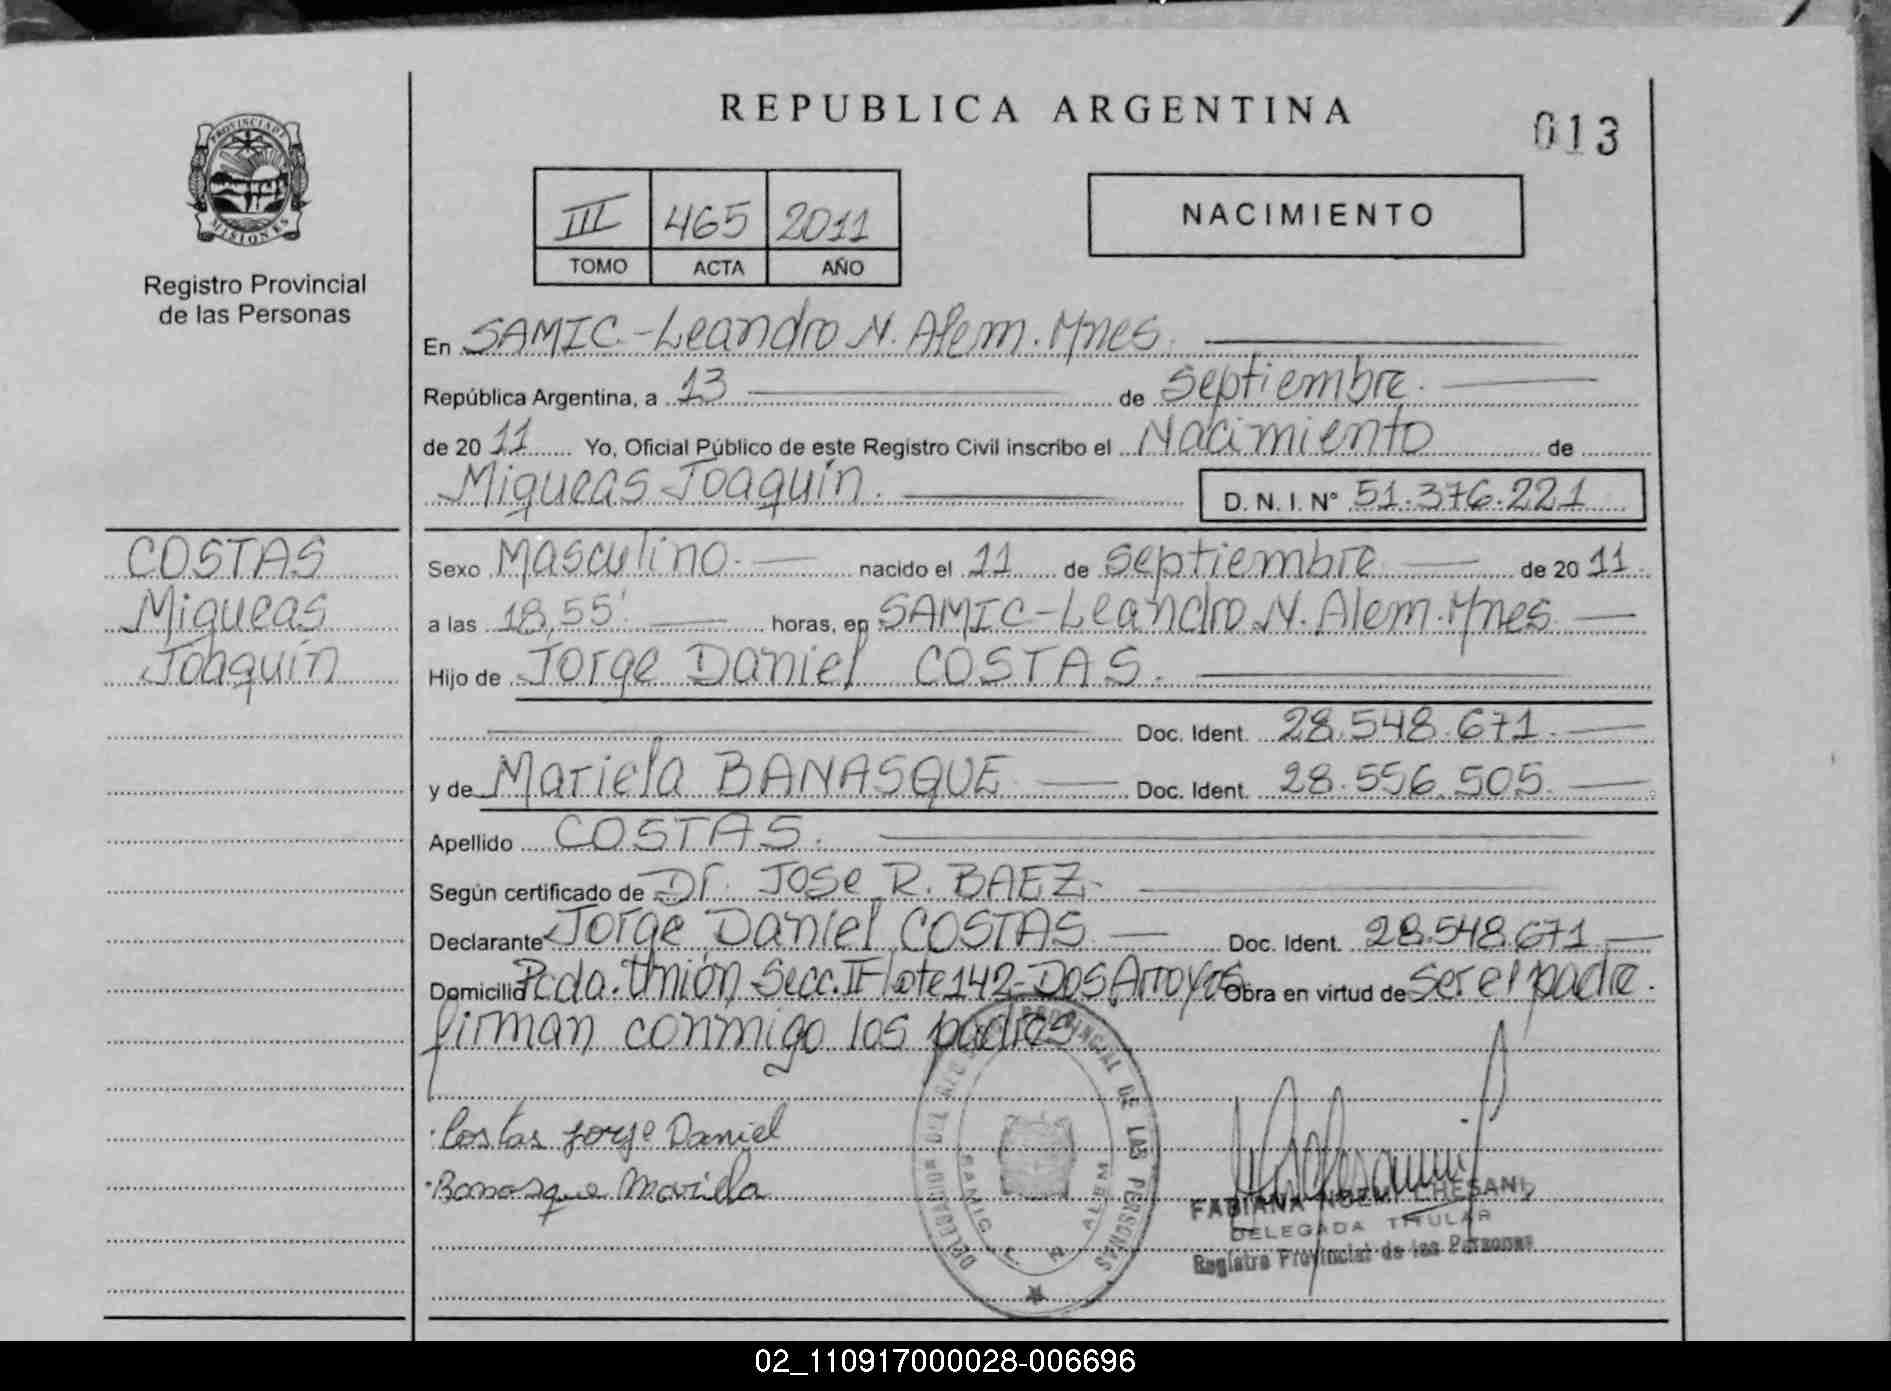 REPUBLICA ARGENTINA
013
PROVINCIA DE
MISIONES
Registro Provincial
de las Personas
III 465 2011
TOMO ACTA AÑO
NACIMIENTO
En SAMIC-Leandro N. Alem. Mnes.
República Argentina, a 13 de Septiembre.
de 2011 Yo, Oficial Público de este Registro Civil inscribo el Nacimiento de
Miqueas Joaquín. D. N. I. Nº 51.376.221
COSTAS
Miqueas
Joaquín
Sexo Masculino. nacido el 11 de Septiembre de 2011
a las 18,55' horas, en SAMIC-Leandro N. Alem. Mnes
Hijo de Jorge Daniel COSTAS.
Doc. Ident. 28.548.671.
y de Mariela BANASQUE Doc. Ident. 28.556.505.
Apellido COSTAS.
Según certificado de Dr. Jose R. BAEZ.
Declarante Jorge Daniel COSTAS Doc. Ident. 28.548.671
Domicilio Pcda. Unión Secc. II lote 142-Dos Arroyos Obra en virtud de ser el padre.
firman conmigo los padres
Costas Jorge Daniel
Banasque Mariela
PROVINCIAL DE LAS PERSONAS
SAMIC L N ALEM
FABIANA NOEMI CHESANI
DELEGADA TITULAR
Registro Provincial de las Personas
02_110917000028-006696